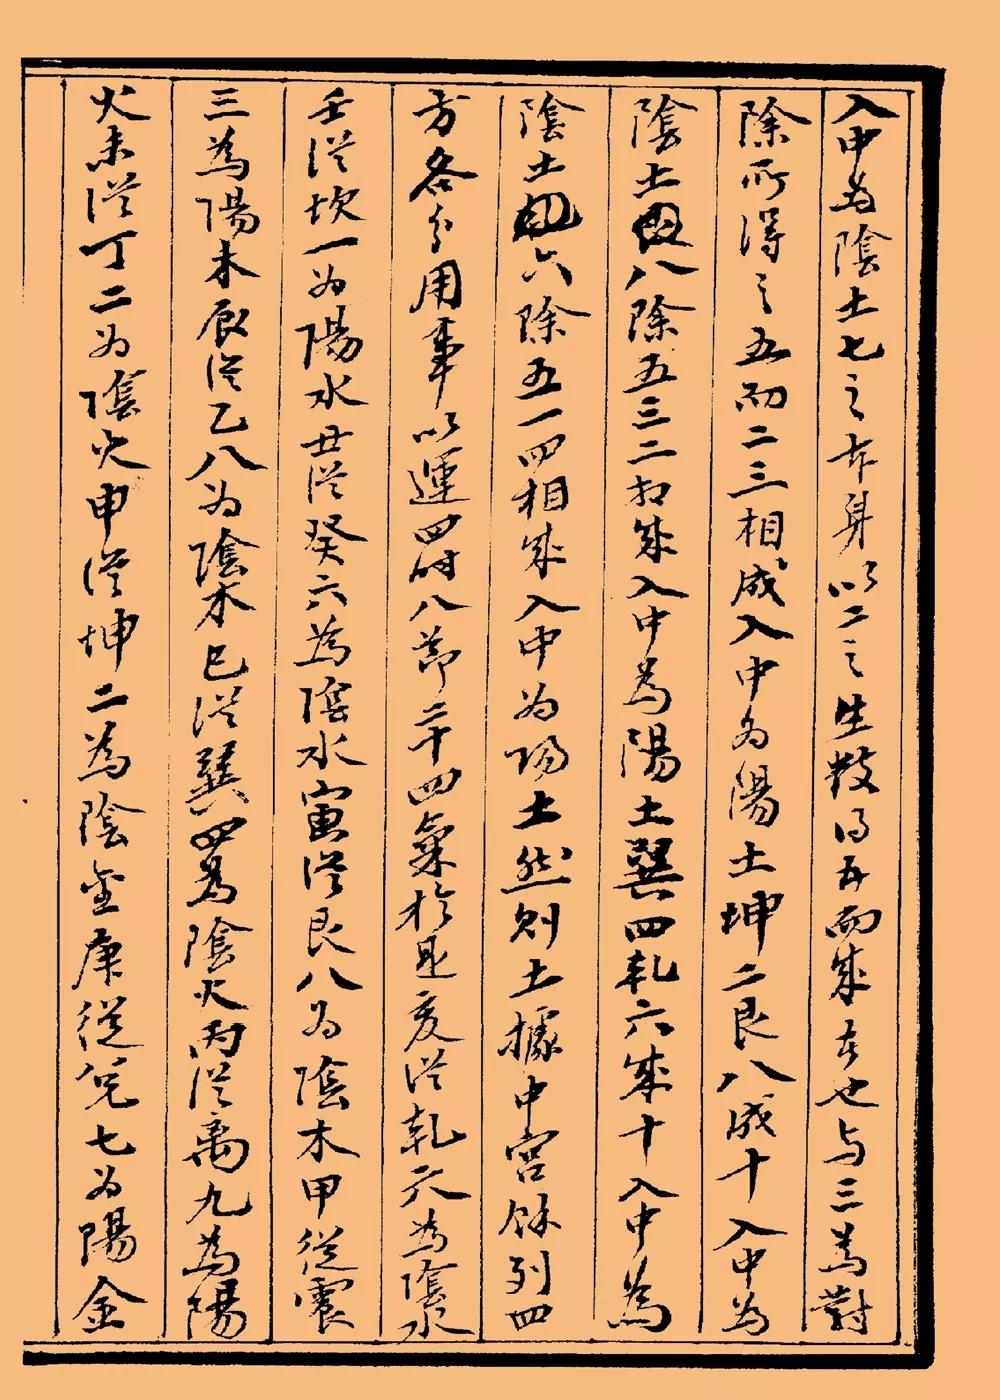 入中為陰土七之本身以二之生数得五而成者也与三為對
除所得之五而二三相成入中為陽土坤二艮八成十入中為
陰土八除五三二相成入中為陽土巽四乾六成十入中為
陰土六除五一四相成入中为陽土然則土據中宫餘列四
方各分用事以運四時八節二十四氣於是亥從乾六為陰水
壬從坎一为陽水丑從癸六為陰水寅從艮八为陰木甲從震
三為陽木辰從乙八为陰木巳從巽四為陰火丙從离九為陽
火未從丁二为陰火申從坤二為陰金庚從兑七为陽金